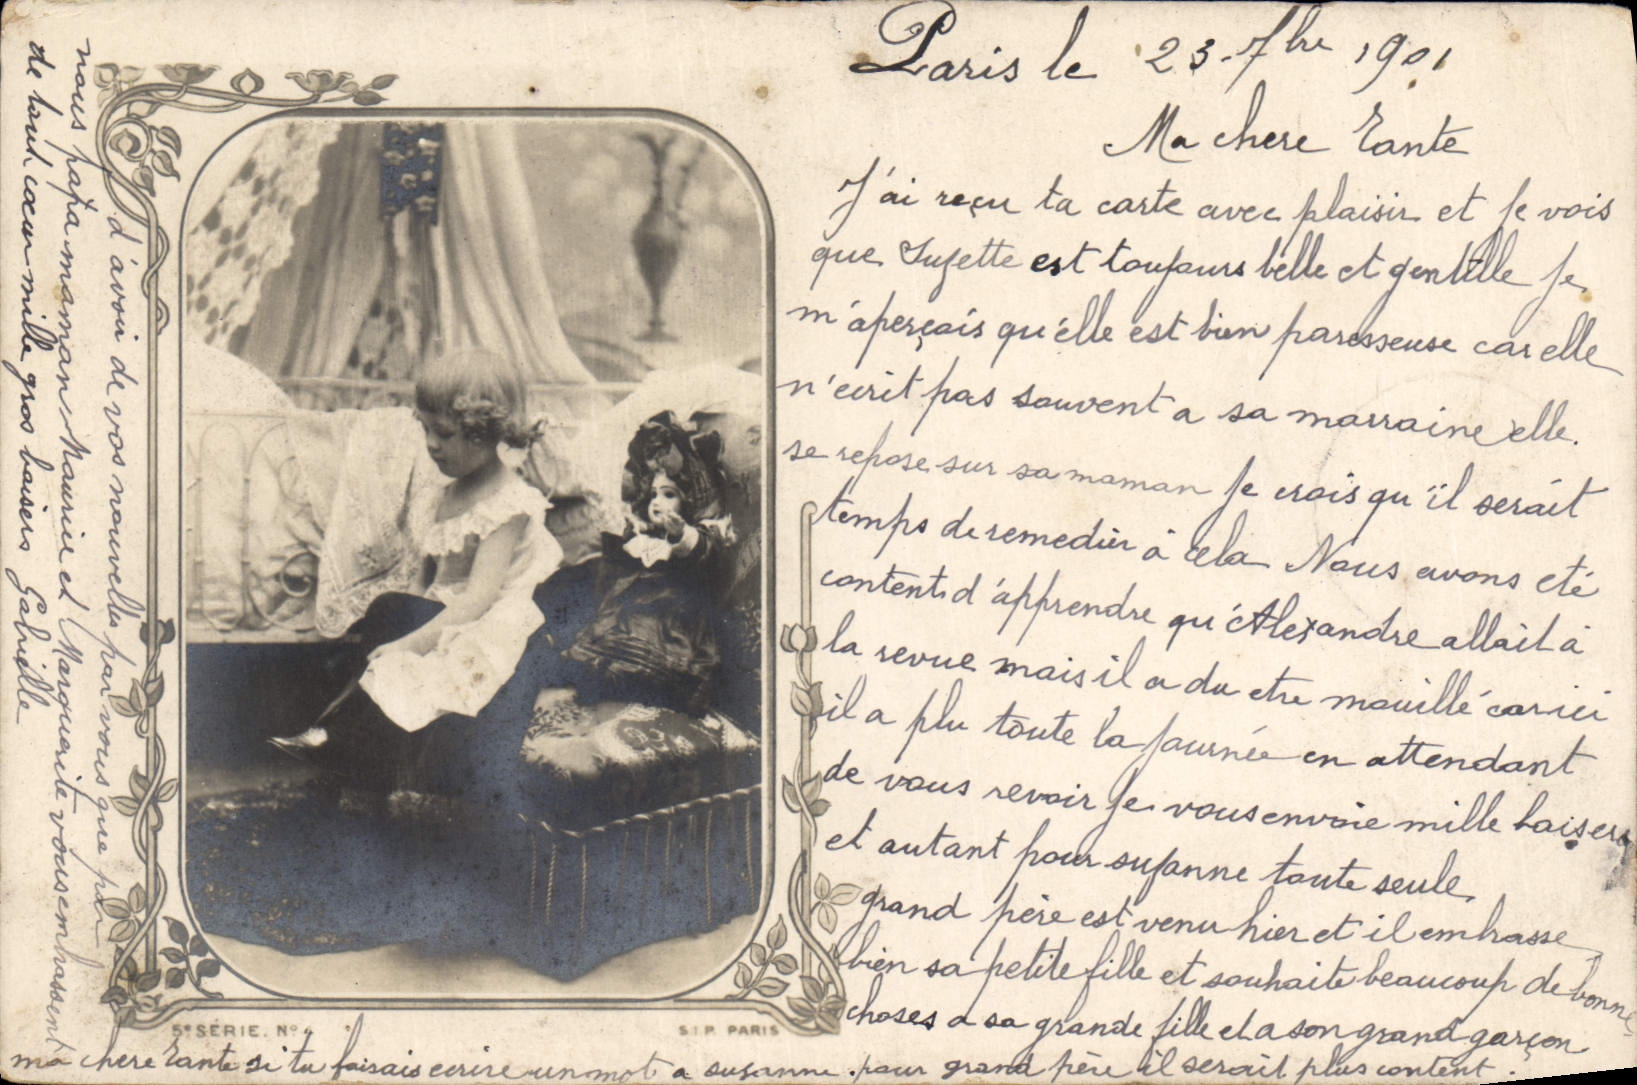 Paris le 23 7bre 1901
Ma chere Tante
J'ai reçu ta carte avec plaisir et je vois
que Suzette est toujours belle et gentille je
m'aperçois qu'elle est bien paresseuse car elle
n'ecrit pas souvent a sa marraine elle
se repose sur sa maman je crois qu'il serait
temps de remedier à cela Nous avons eté
content d'apprendre qu'Alexandre allait à
la revue mais il a du etre mouillé car ici
il a plu toute la journée en attendant
de vous revoir je vous envoie mille baisers
et autant pour suzanne toute seule
grand père est venu hier et il embrasse
bien sa petite fille et souhaite beaucoup de bonne
choses a sa grande fille et a son grand garçon
ma chere Tante si tu faisais ecrire un mot a suzanne pour grand père il serait plus content
d'avoir de vos nouvelles par vous que par
nous papa maman Maurice et Marguerite vous embrassent
de tout coeur mille gros baisers Gabrielle
5e SÉRIE. No 4
S.I.P. PARIS